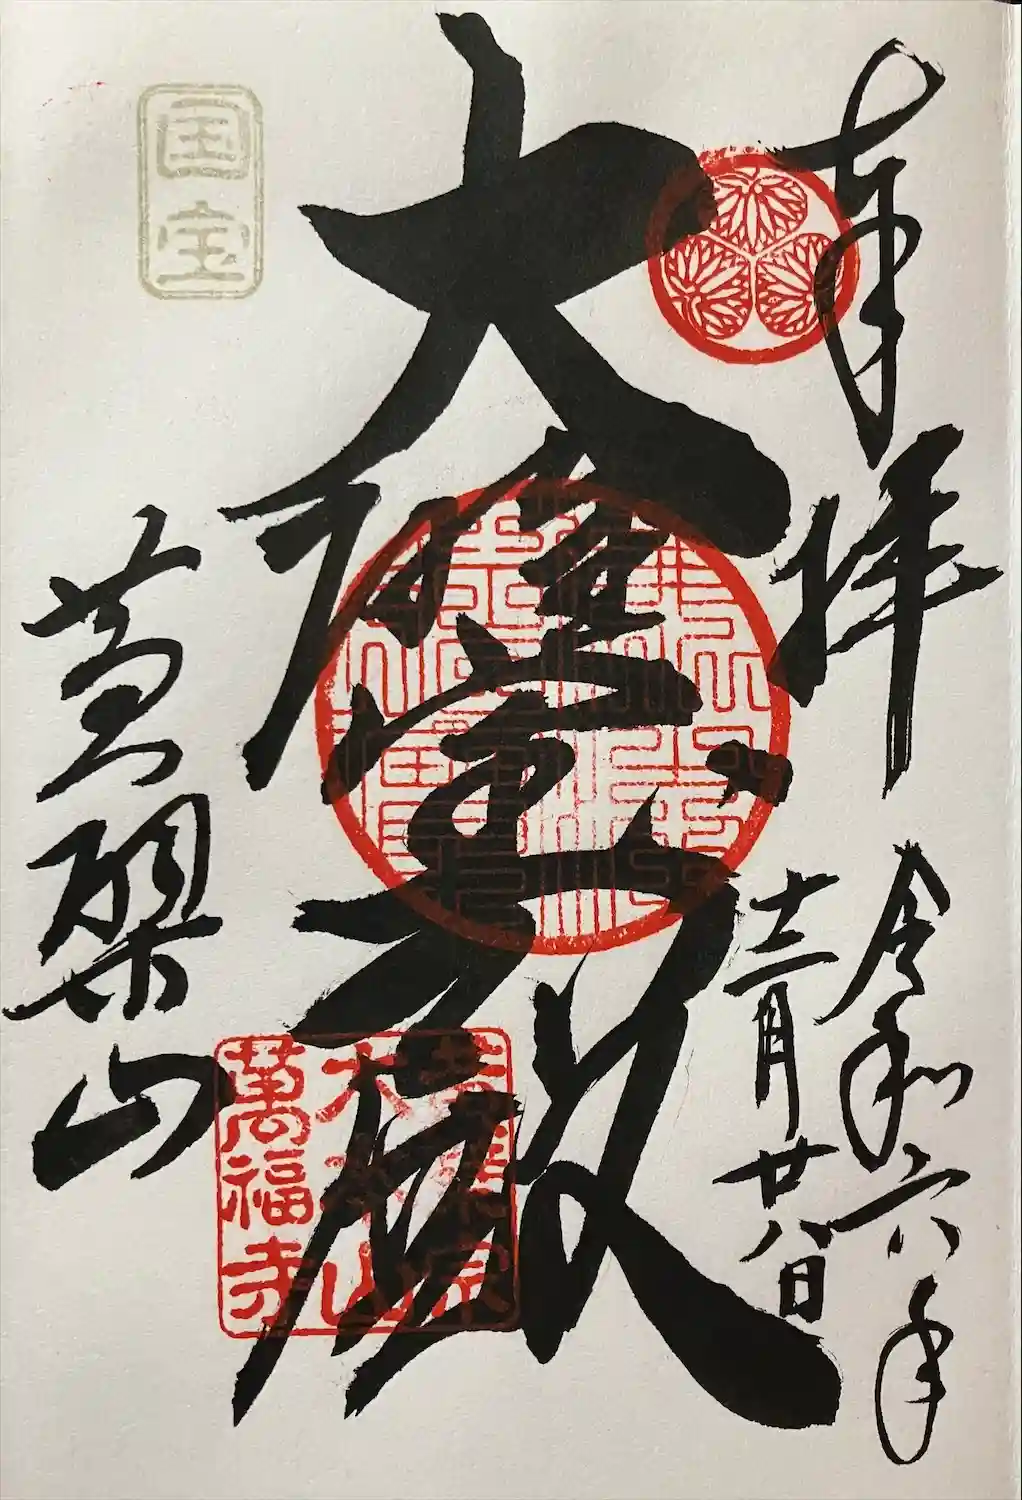 奉拝
令和六年
十二月廿八日
大雄宝殿
黄檗山
国宝
黄檗宗
大本山
萬福寺